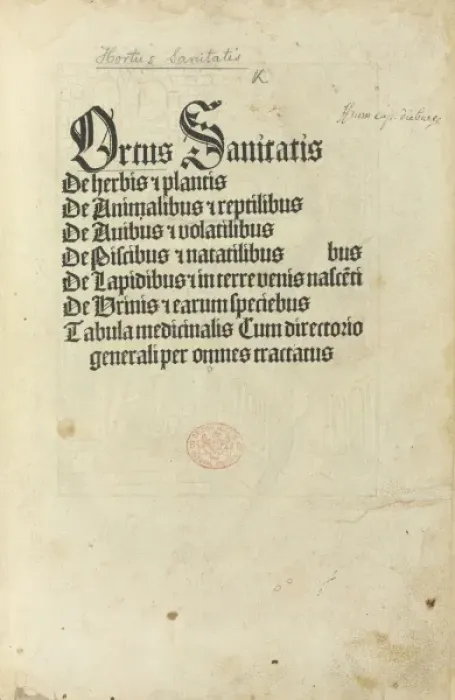 Hortus Sanitatis
K
Ortus Sanitatis
De herbis ⁊ plantis
De Animalibus ⁊ reptilibus
De Auibus ⁊ volatilibus
De Piscibus ⁊ natatilibus bus
De Lapidibus ⁊ in terre venis nascẽti
De Urinis ⁊ earum speciebus
Tabula medicinalis Cum directorio
generali per omnes tractatus